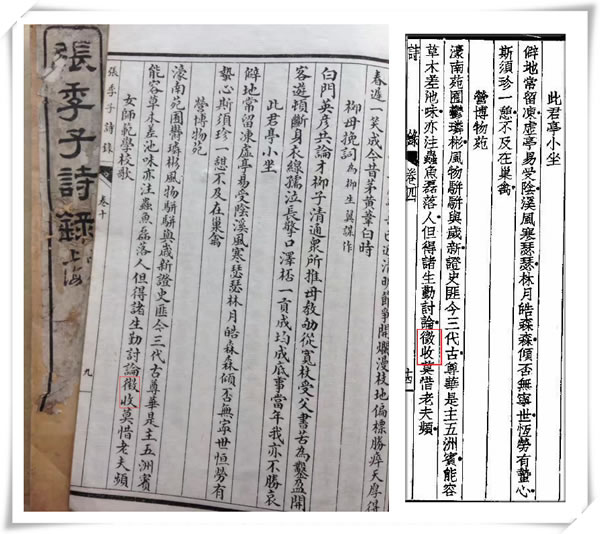 張季子詩錄
上海
清明節爭開爛漫枝地偏標勝
一笑成今昔茅黃葦白時
柳母挽詞為柳生翼謀作
白門英彥共論才柳子清通眾所推母教劬從受父書苦為鑿開
客遊頓斷身衣線孺泣長擎口澤桮一貢成均成底事當年我亦不勝哀
此君亭小坐
僻地常留凍虛亭易受陰溪風寒瑟瑟林月皓森森傾否無寧世恒勞有
蟄心斯須珍一憩不及在巢禽
營博物苑
濠南苑囿鬱璘彬風物駢駢與歲新證史匪今三代古尊華是主五洲賓
能容草木差池味亦注蟲魚磊落人但得諸生勤討論徵收莫惜老夫頻
女師範學校歌
張季子詩錄 卷十 九
此君亭小坐
僻地常留凍虛亭易受陰溪風寒瑟瑟林月皓森森傾否無寧世恆勞有蟄心
斯須珍一憩不及在巢禽
營博物苑
濠南苑囿鬱璘彬風物駢駢與歲新證史匪今三代古尊華是主五洲賓能容
草木差池味亦注蟲魚磊落人但得諸生勤討論徵收莫惜老夫頻
詩錄 卷四 十四